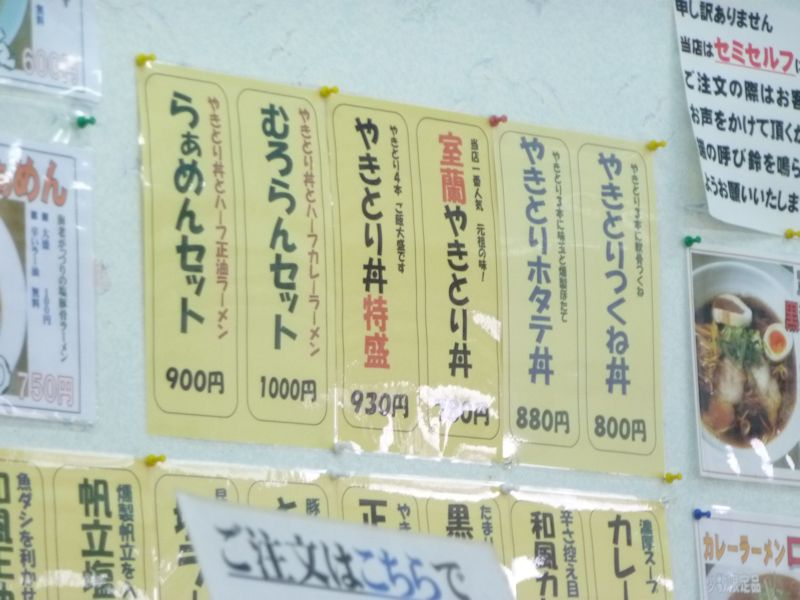 申し訳ありません
当店はセミセルフ
ご注文の際はお客
お声をかけて頂くか
の呼び鈴を鳴ら
ようお願いいたしま
やきとり3本に軟骨つくね
やきとりつくね丼
800円
やきとり3本に味玉と燻製ほたて
やきとりホタテ丼
880円
当店一番人気 元祖の味!
室蘭やきとり丼
やきとり4本 ご飯大盛です
やきとり丼特盛
930円
やきとり丼とハーフカレーラーメン
むろらんセット
1000円
やきとり丼とハーフ正油ラーメン
らぁめんセット
900円
無料
600円
めん
海老がっつりの塩豚骨ラーメン
■大盛 100円
■辛いラー油 無料
750円
黒
濃厚スープ
カレー
辛さ控え目
和風カ
黒
正
燻製帆立を
帆立塩
魚ダシを利か
和風正油
カレーラーメン
ご注文はこちらで